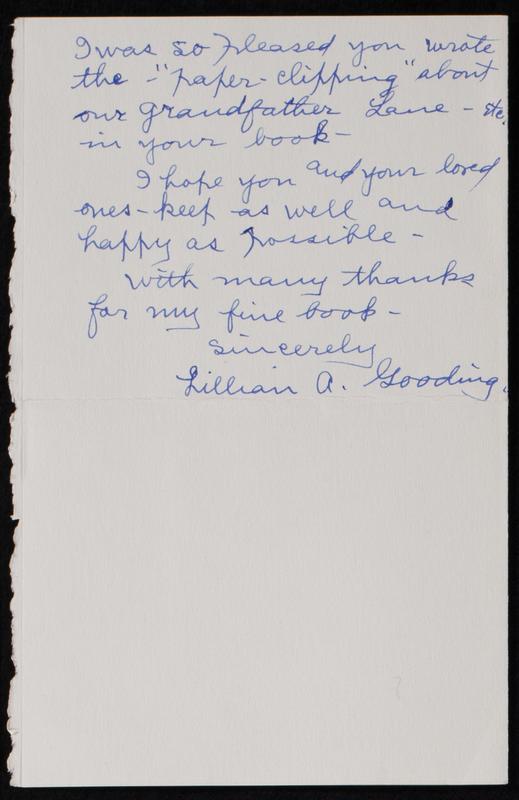 I was so pleased you wrote
the - "paper-clipping" about
our grandfather Lane - etc.
in your book -
I hope you and your loved
ones - keep as well and
happy as possible -
With many thanks
for my fine book -
Sincerely
Lillian A. Gooding.